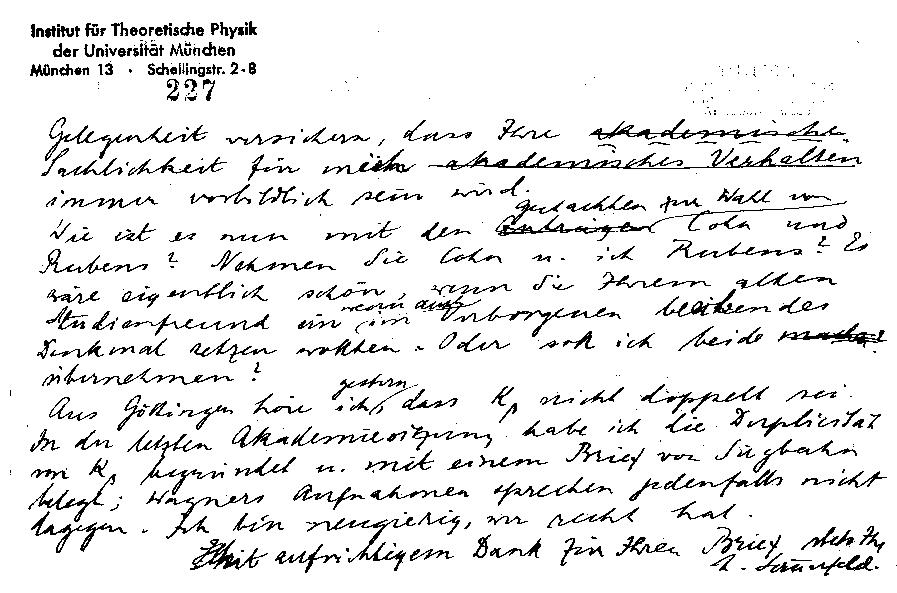 Institut für Theoretische Physik
der Universität München
München 13 · Schellingstr. 2-8
227
Gelegenheit versichern, dass Ihre akademische
Sachlichkeit für mich akademisches Verhalten
immer vorbildlich sein wird.
Gutachten zur Wahl von
Wie ist es nun mit den Anträgen Cohn und
Rubens? Nehmen Sie Cohn u. ich Rubens? Es
wäre eigentlich schön, wenn Sie Ihrem alten
wenn auch
Studienfreund ein im Verborgenen bleibendes
Denkmal setzen wollten. Oder soll ich beide
übernehmen?
gestern
Aus Göttingen höre ich, dass Kβ nicht doppelt sei.
In der letzten Akademiesitzung habe ich die Duplicität
von Kβ begründet u. mit einem Brief von Siegbahn
belegt; Wagners Aufnahmen sprechen jedenfalls nicht
dagegen. Ich bin neugierig, wer recht hat.
Mit aufrichtigem Dank für Ihren Brief stets Ihr
A. Sommerfeld.